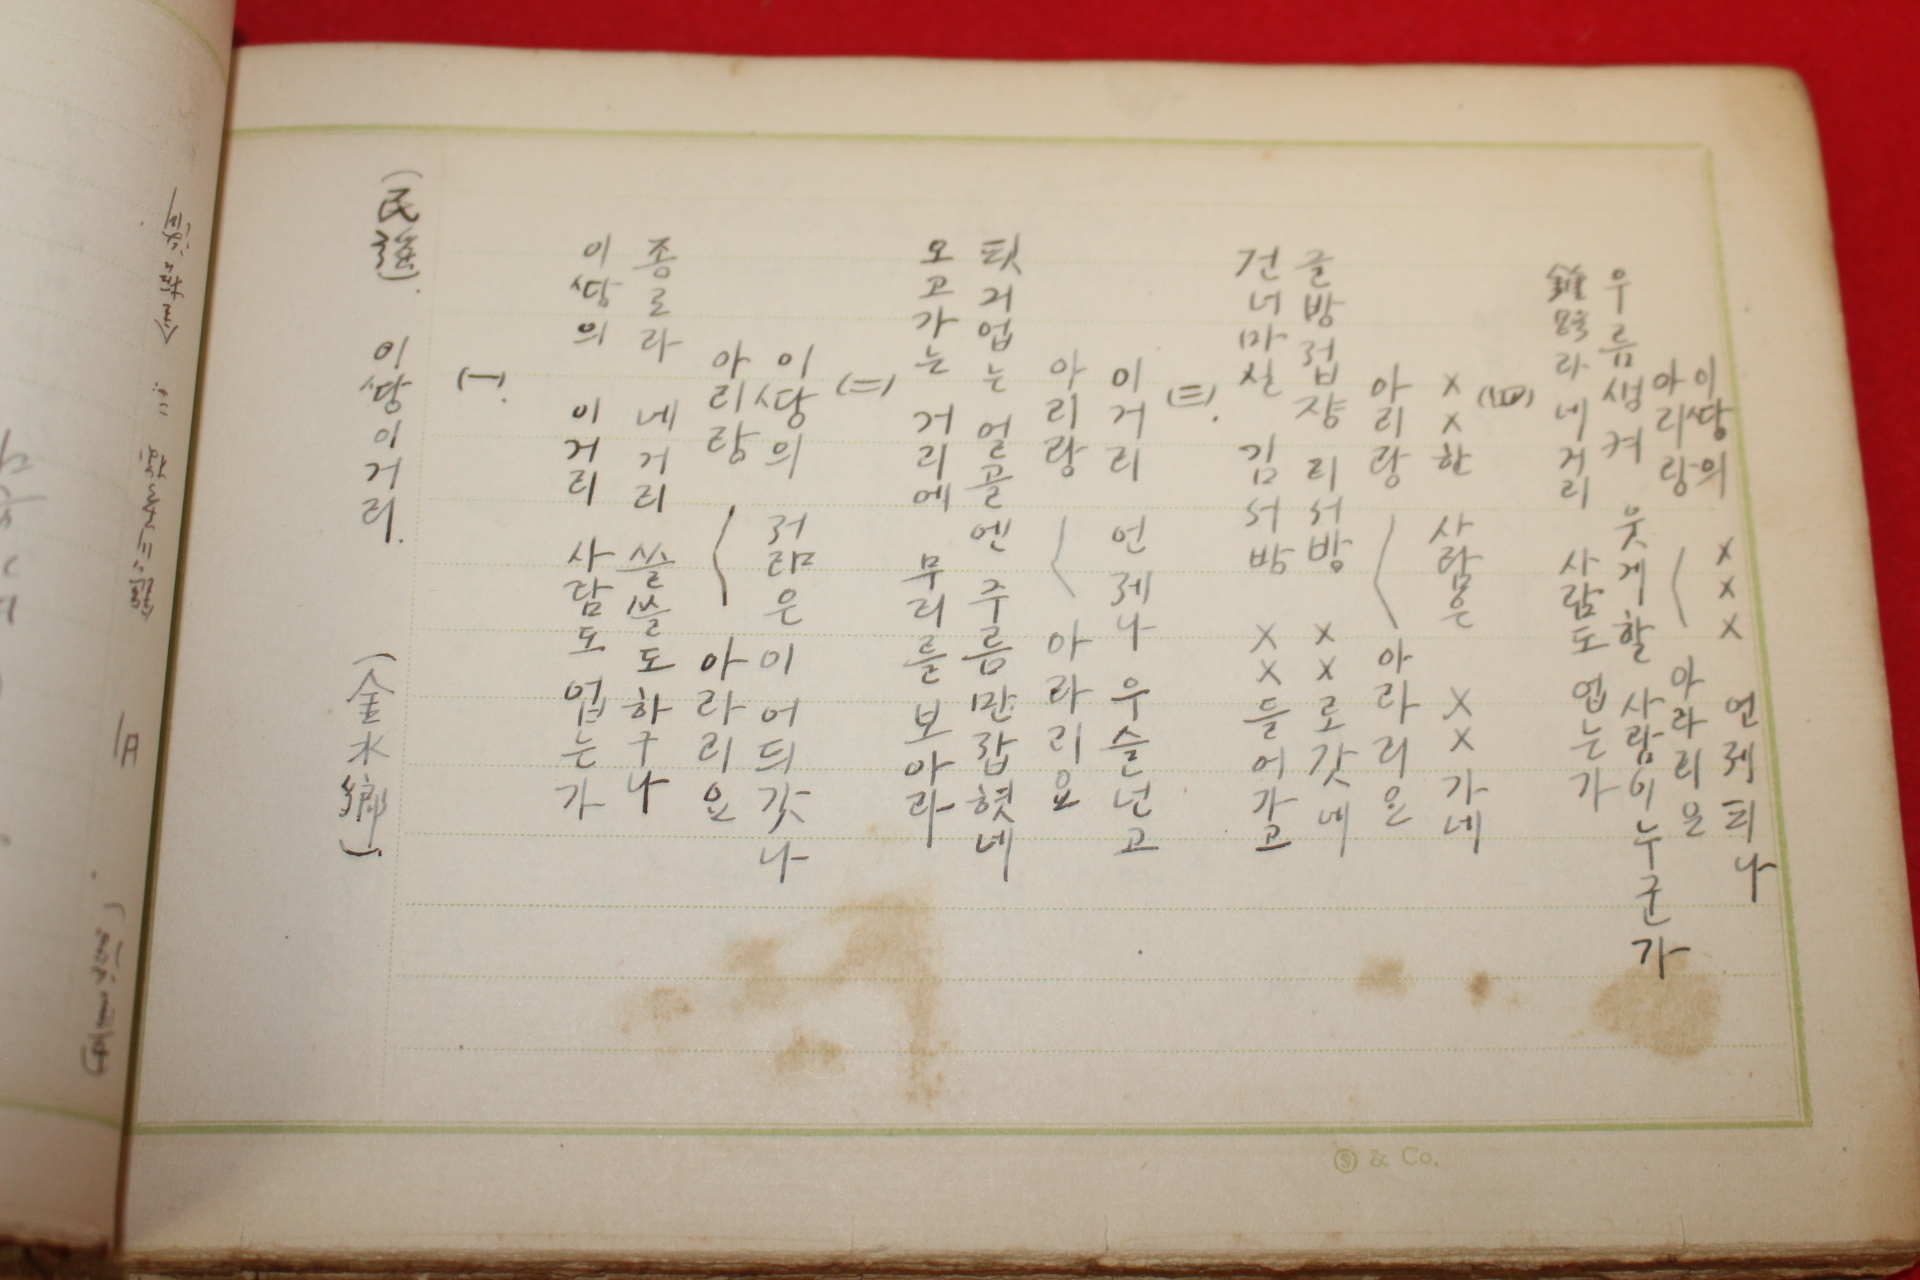 (民謠). 이땅이거리. (金水鄕).
(一).
이땅의 이거리 사람도 업는가
종로라 네거리 쓸쓸도하구나
아리랑 〱 아라리요
이땅의 젊은이 어듸갓나
(二)
오고가는 거리에 무리를 보아라
핏거업는 얼골엔 주름만잡혓네
아리랑 〱 아라리요
이거리 언제나 우슬넌고
(三).
건너마실 김서방 XX들어가고
글방접쟝 리서방 XX로갓네
아리랑 〱 아라리요
XX한 사람은 XX가네
(四)
鍾路라네거리 사람도 업는가
우름생켜 웃게할 사람이누군가
아리랑 〱 아라리요
이땅의 XXX 언제피나
Ⓢ & Co.